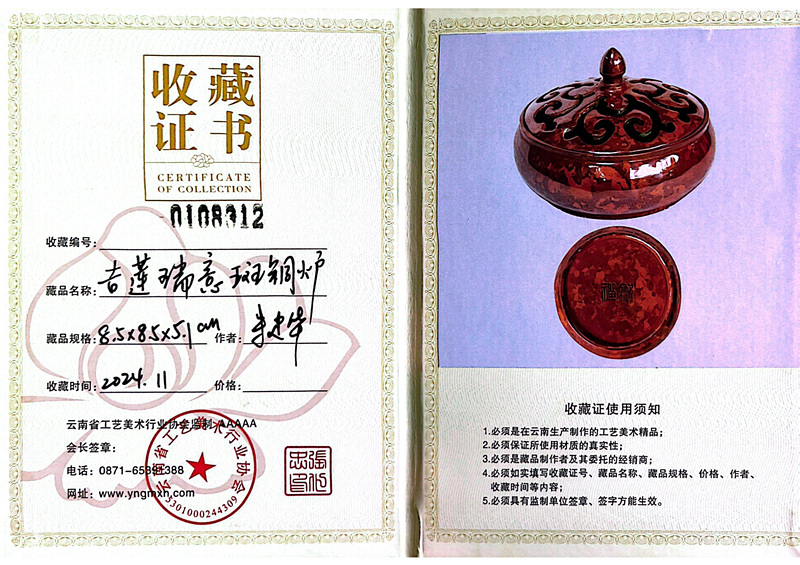 收藏
证书
CERTIFICATE
OF COLLECTION
0108312
收藏编号：
藏品名称：吉莲瑞意斑铜炉
藏品规格：8.5x8.5x5.1cm 作者：
收藏时间：2024.11 价格：
云南省工艺美术行业协会监制 AAAAA
会长签章：
电话：0871-65 388
网址：www.yngmxh.com
云南省工艺美术行业协会
5301000244309
收藏证使用须知
1.必须是在云南生产制作的工艺美术精品；
2.必须保证所使用材质的真实性；
3.必须是藏品制作者及其委托的经销商；
4.必须如实填写收藏证号、藏品名称、藏品规格、价格、作者、
收藏时间等内容；
5.必须具有监制单位签章、签字方能生效。